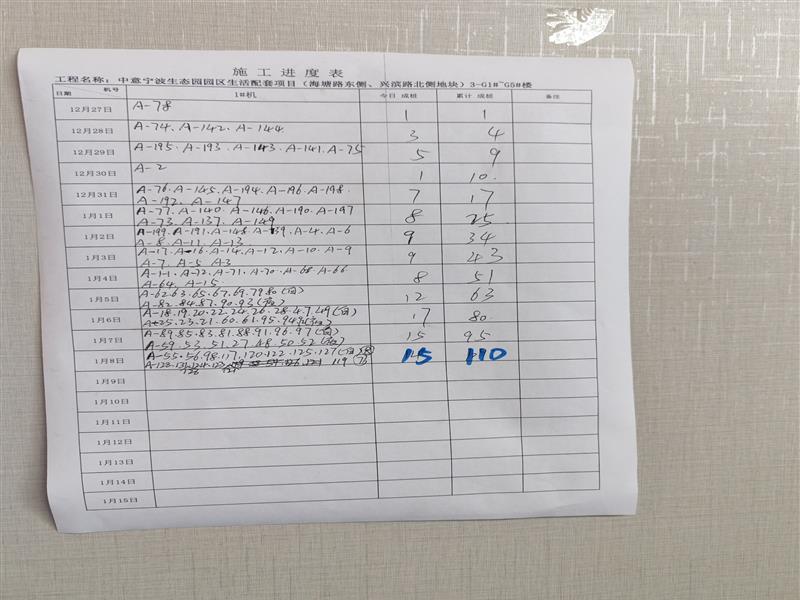 施工进度表
工程名称：中意宁波生态园园区生活配套项目（海塘路东侧、兴滨路北侧地块）3-G1#~G5#楼
日期 机号 1#机 今日 成桩 累计 成桩 备注
12月27日 A-78 1 1
12月28日 A-74、A-142、A-144 3 4
12月29日 A-195、A-193、A-143、A-141、A-75 5 9
12月30日 A-2 1 10
12月31日 A-76、A-145、A-194、A-196、A-198、
A-192、A-147 7 17
1月1日 A-77、A-140、A-146、A-190、A-197
A-73、A-137、A-149 8 25
1月2日 A-199、A-191、A-148、A-139、A-4、A-6
A-8、A-11、A-13 9 34
1月3日 A-17、A-16、A-14、A-12、A-10、A-9
A-7、A-5、A3 9 43
1月4日 A-1、A-72、A-71、A-70、A-68、A-66
A-64、A-15 8 51
1月5日 A-62.63.65.67.69.79.80(白)
A-82.84.87.90.93(夜) 12 63
1月6日 A-18.19.20.22.24.26.28.4.7.49(白)
A-25.23.21.60.61.95.94 (夜) 17 80
1月7日 A-89.85.83.81.88.91.96.97(白)
A-59.53.51.27.48.50.52(夜) 15 95
1月8日 A-55.56.98.117.120.122.125.127(白
119 15 110
1月9日
1月10日
1月11日
1月12日
1月13日
1月14日
1月15日